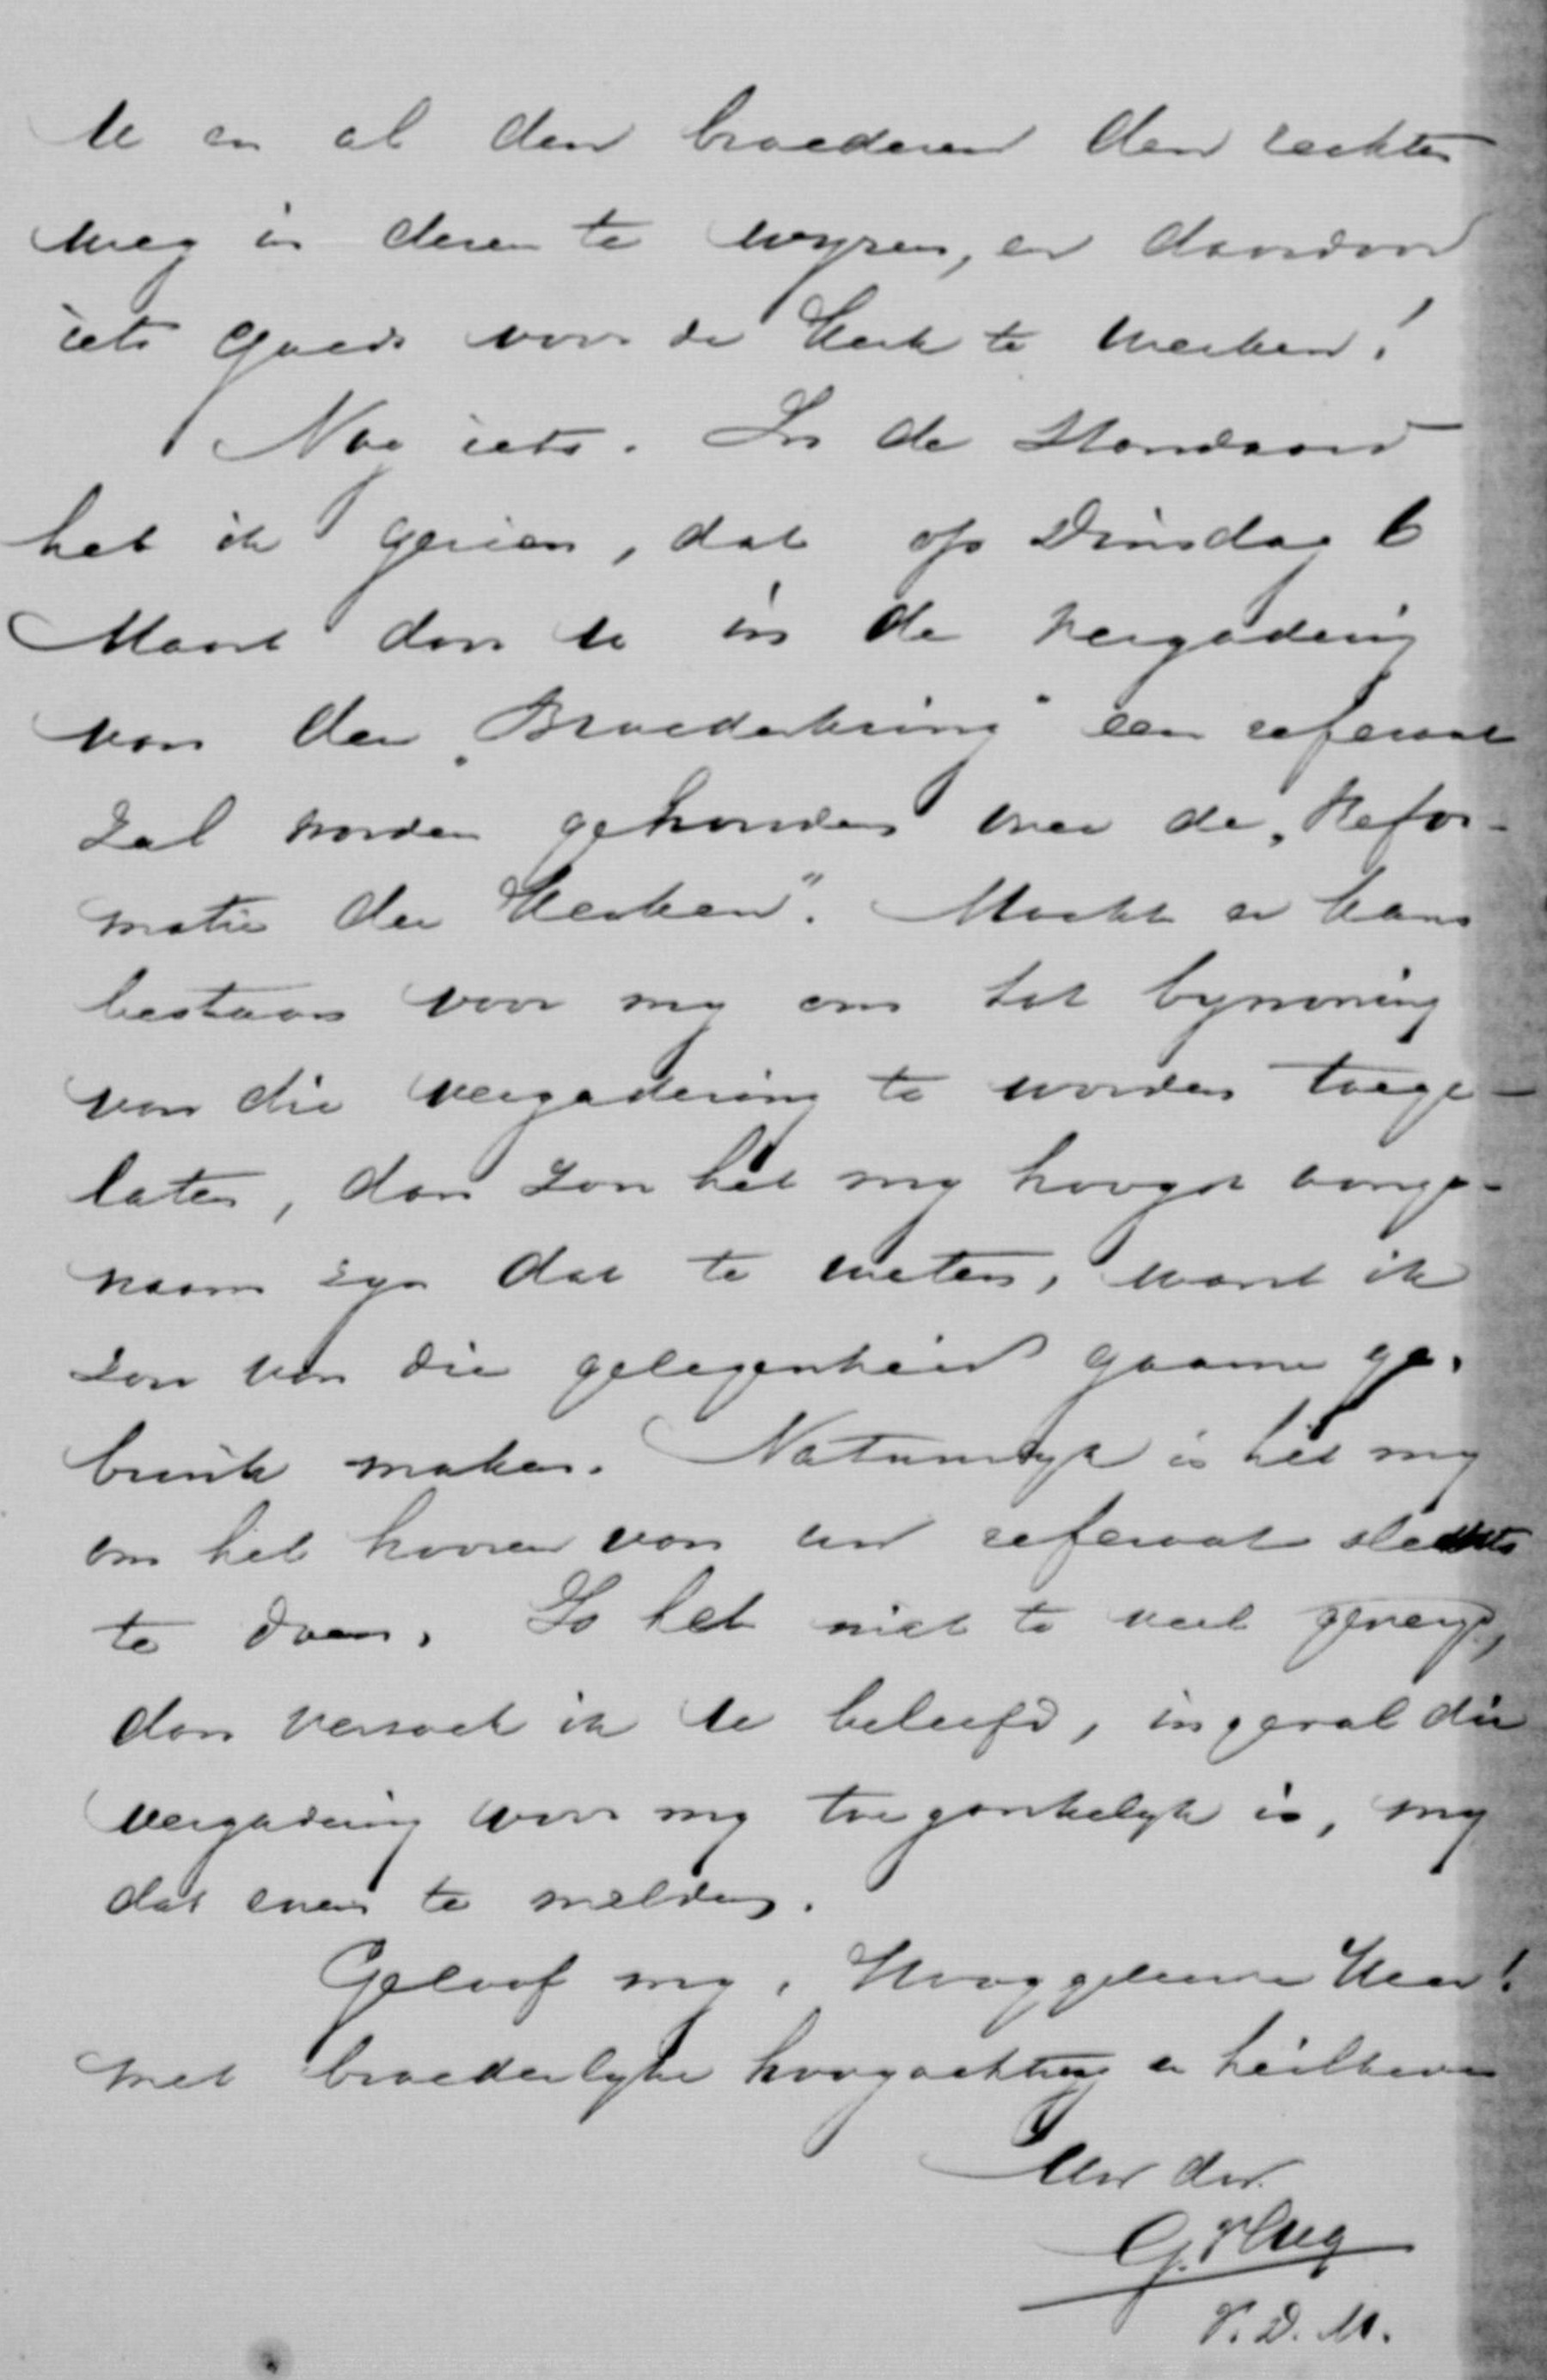 U en al den broederen den rechten
weg in dezen te wyzen, en daardoor
iets goeds voor de Kerk te werken!
Nog iets. In de Standaard
heb ik gezien, dat op Dinsdag 6
Maart door U in de vergadering
van den „Broederkring" een referaat
zal worden gehouden over de „Refor-
matie der Kerken". Mocht er kans
bestaan voor my om tot bywoning
van die vergadering te worden toege-
laten, dan zou het my hoogst aange-
naam zyn dat te weten, want ik
zou van die gelegenheid gaarne ge-
bruik maken. Natuurlyk is het my
om het hooren van uw referaat slechts
te doen. Is het niet te veel gevergd,
dan verzoek ik U beleefd, ingeval die
vergadering voor my toegankelyk is, my
dat even te melden.
Geloof my, Hooggeleerde Heer!
met broederlyke hoogachting en heilbede
Uw dw.
G. Vlug
V. D. M.